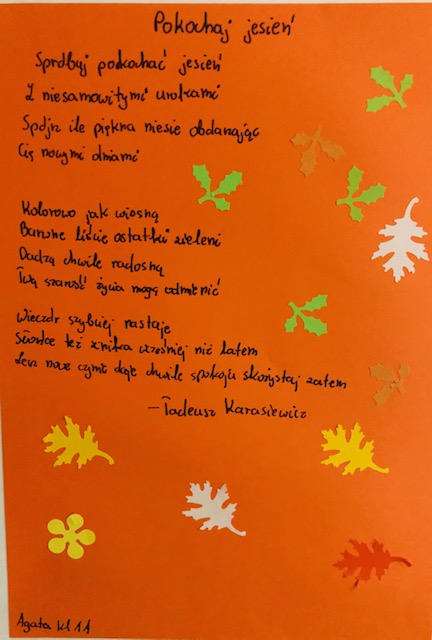 Pokochaj jesień
Spróbuj pokochać jesień
Z niesamowitymi urokami
Spójrz ile piękna niesie obdarując
Cię nowymi dniami
Kolorowo jak wiosną
Barwne liście ostatki zieleni
Dadzą chwile radosną
Twą szarość życia mogą odmienić
Wieczór szybciej nastaje
Słońce też znika wcześniej niż latem
Lecz nowe czymś daje chwile spokoju skorzystaj zatem
—Tadeusz Karasiewicz
Agata kl 11